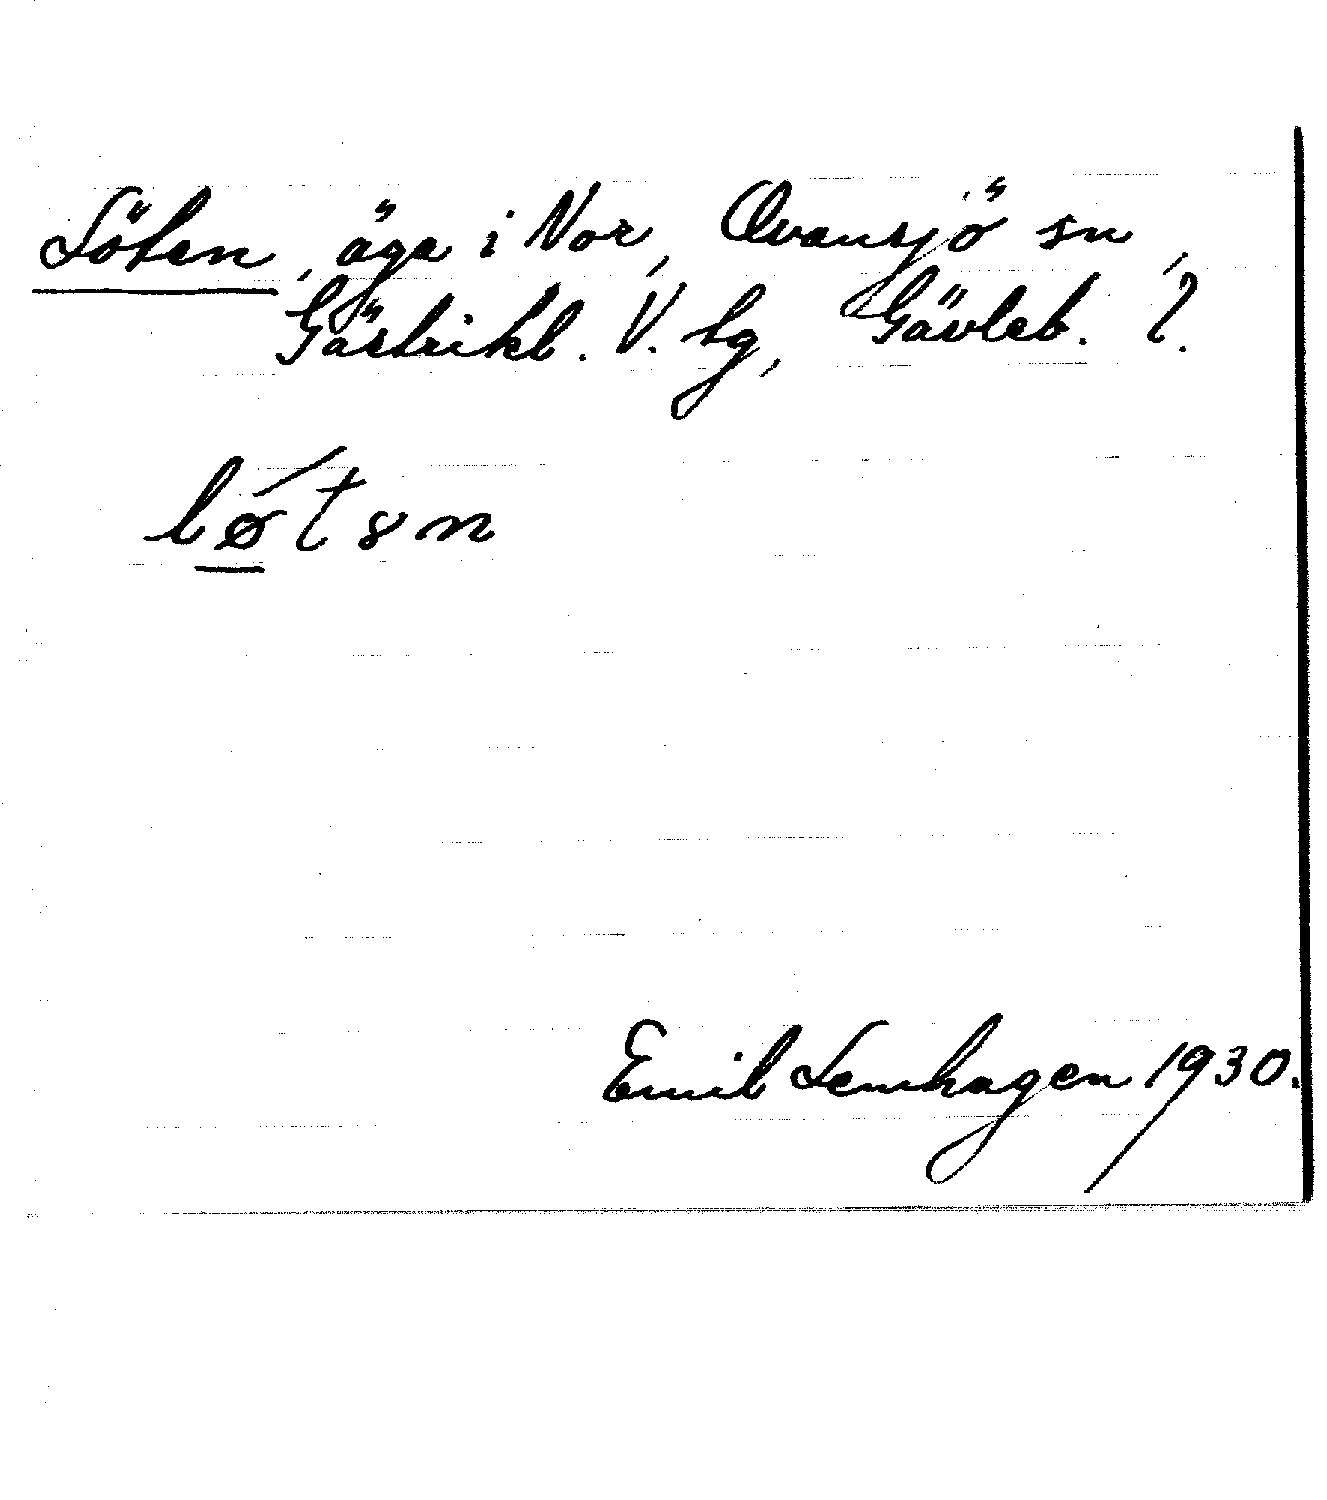 Löten, äga i Nor, Ovansjö sn,
Gästrikl. V. tg, Gävleb. l.
løtən
Emil Lenhagen 1930.